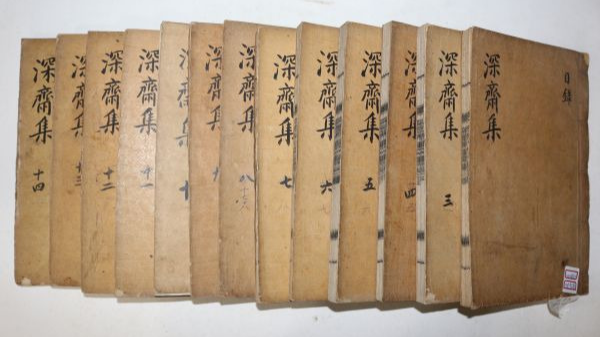 目錄
深齋集
深齋集 三
深齋集 四
深齋集 五
深齋集 六
深齋集 七
深齋集 八
深齋集 九
深齋集 十
深齋集 十一
深齋集 十二
深齋集 十三
深齋集 十四